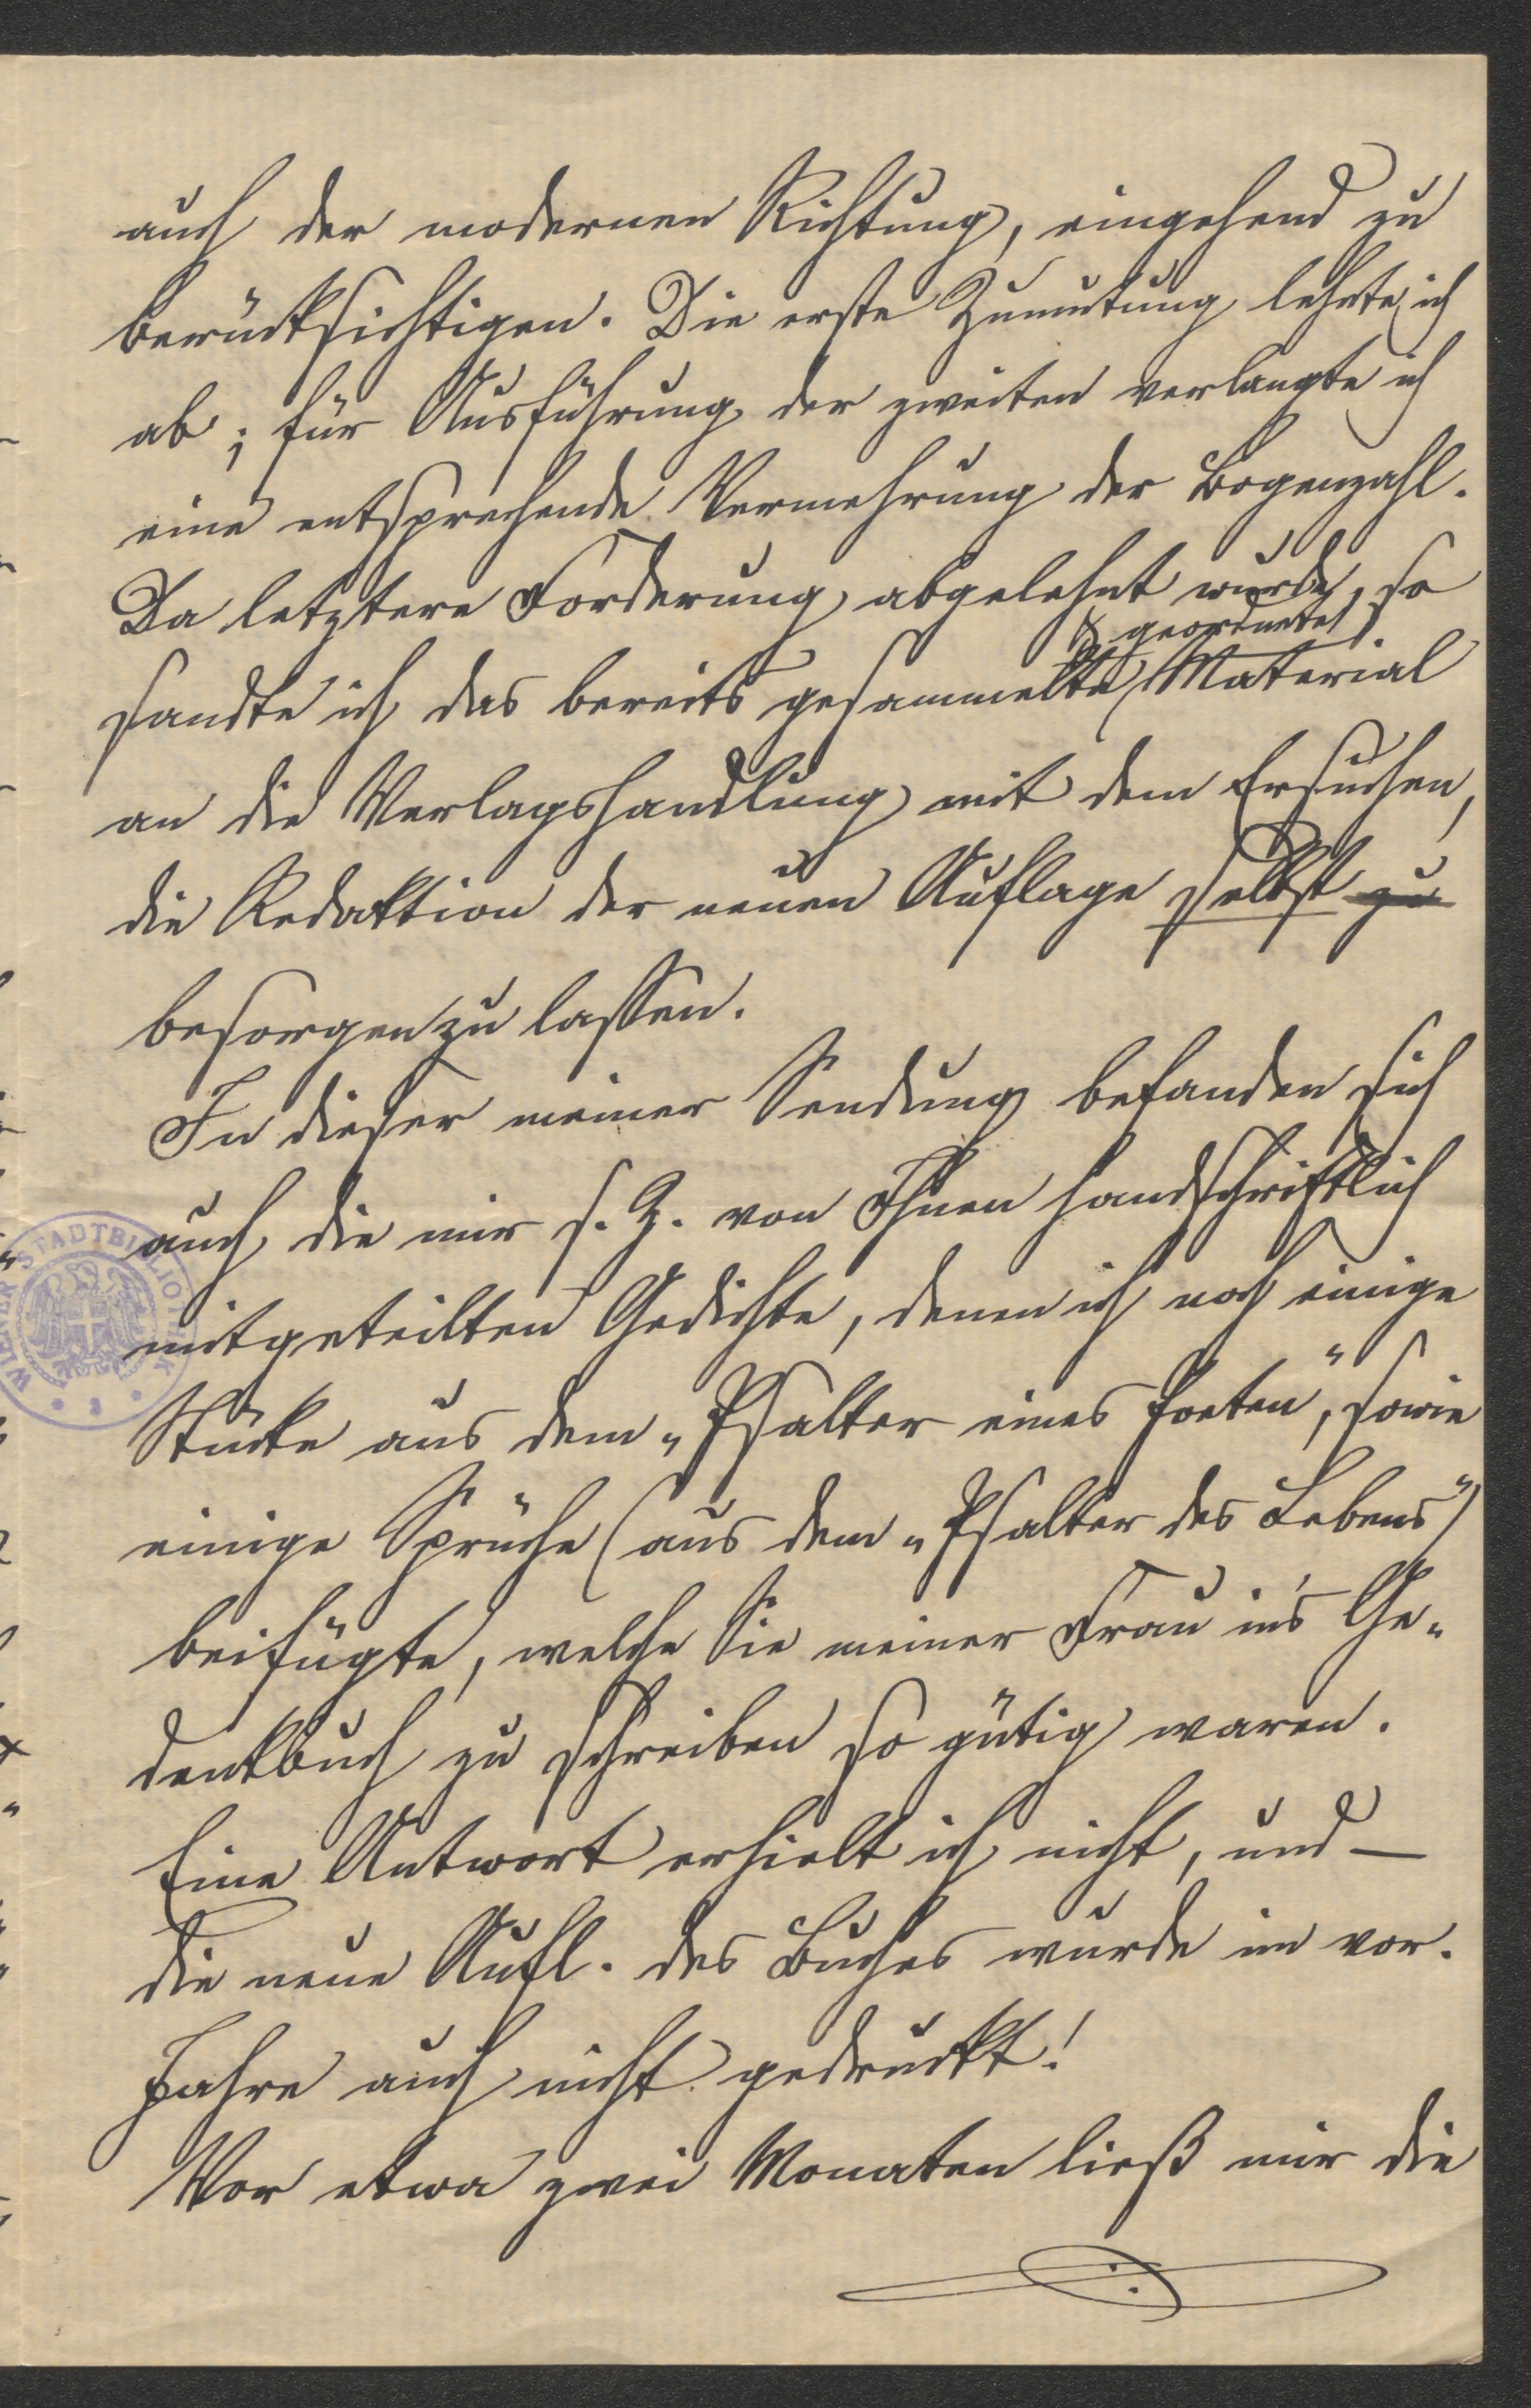 auch der modernen Richtung, eingehend zu
berücksichtigen. Die erste Zumutung lehnte ich
ab; für Ausführung der zweiten verlangte ich
eine entsprechende Vermehrung der Bogenzahl.
Da letztere Forderung abgelehnt wurde, so
& geordnete
sandte ich das bereits gesammelte Material
an die Verlagshandlung mit dem Ersuchen,
die Redaktion der neuen Auflage selbst zu
besorgen zu lassen.
In dieser meiner Sendung befanden sich
auch die mir s. Z. von Ihnen handschriftlich
mitgeteilten Gedichte, denen ich noch einige
Stücke aus dem „Psalter eines Poeten“, sowie
einige Sprüche (aus dem „Psalter des Lebens“)
beifügte, welche Sie meiner Frau in's Ge-
denkbuch zu schreiben so gütig waren.
Eine Antwort erhielt ich nicht, und —
die neue Aufl. des Buches wurde im vor.
Jahre auch nicht gedruckt!
Vor etwa zwei Monaten ließ mir die
WIENER STADTBIBLIOTHEK